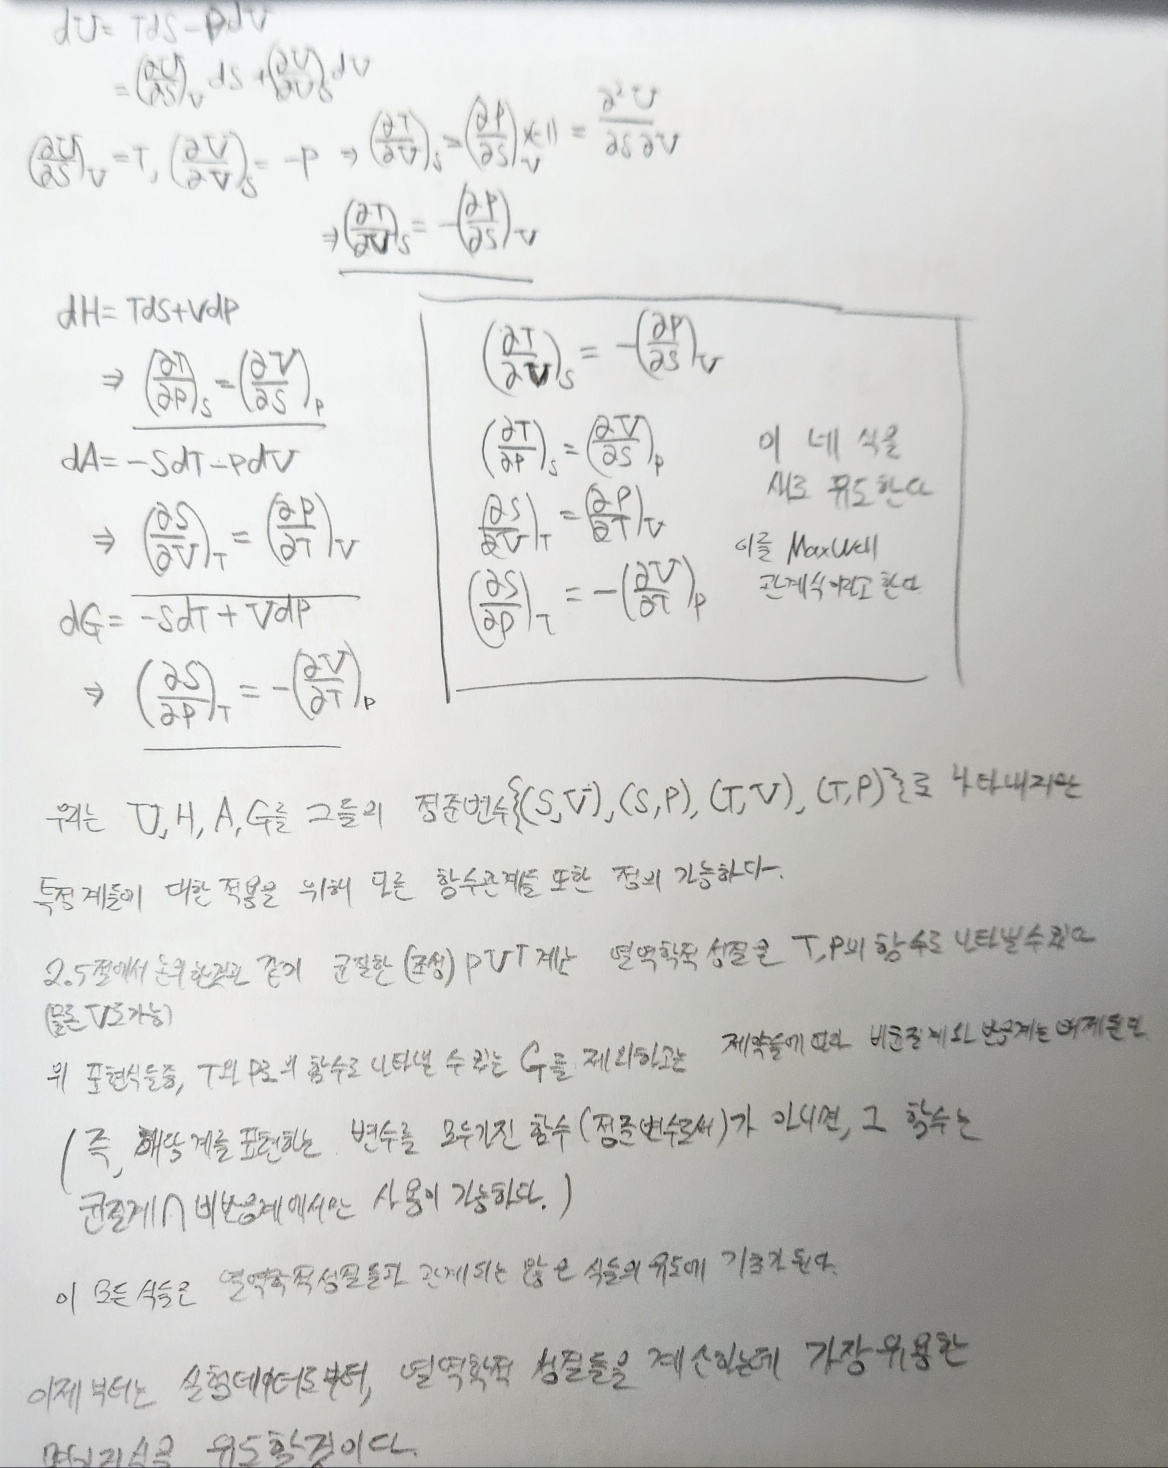 dU = TdS - PdV
= (∂U/∂S)_V dS + (∂U/∂V)_S dV
(∂U/∂S)_V = T, (∂U/∂V)_S = -P ⇒ (∂T/∂V)_S = (∂P/∂S)_V ×(-1) = ∂²U/∂S∂V
⇒ (∂T/∂V)_S = -(∂P/∂S)_V
dH = TdS + VdP
⇒ (∂T/∂P)_S = (∂V/∂S)_P
dA = -SdT - PdV
⇒ (∂S/∂V)_T = (∂P/∂T)_V
dG = -SdT + VdP
⇒ (∂S/∂P)_T = -(∂V/∂T)_P
(∂T/∂V)_S = -(∂P/∂S)_V
(∂T/∂P)_S = (∂V/∂S)_P
(∂S/∂V)_T = (∂P/∂T)_V
(∂S/∂P)_T = -(∂V/∂T)_P
이 네 식을
새로 유도한다
이를 Maxwell
관계식이라고 한다
우리는 U, H, A, G를 그들의 정준변수{(S,V), (S,P), (T,V), (T,P)}로 나타내지만
특정계들에 대한 적용을 위해 다른 함수관계를 또한 정의 가능하다.
2.5절에서 논의한것과 같이 균질한 (조성) PVT계는 열역학적 성질을 T,P의 함수로 나타낼수있다
(물론 V도가능)
위 표현식들중, T와 P로의 함수로 나타낼 수 있는 G를 제외하고는 제약들에 따라 비균질계와 반응계는 배제된다
(즉, 해당계를 표현하는 변수를 모두가진 함수(정준변수로써)가 아니면, 그 함수는
균질계∩비반응계에서만 사용이 가능하다.)
이 모든식들은 열역학적성질들과 관계되는 많은 식들의 유도에 기초가 된다.
이제부터는 실험데이터로부터, 열역학적 성질들을 계산하는데 가장유용한
몇가지식을 유도할것이다.